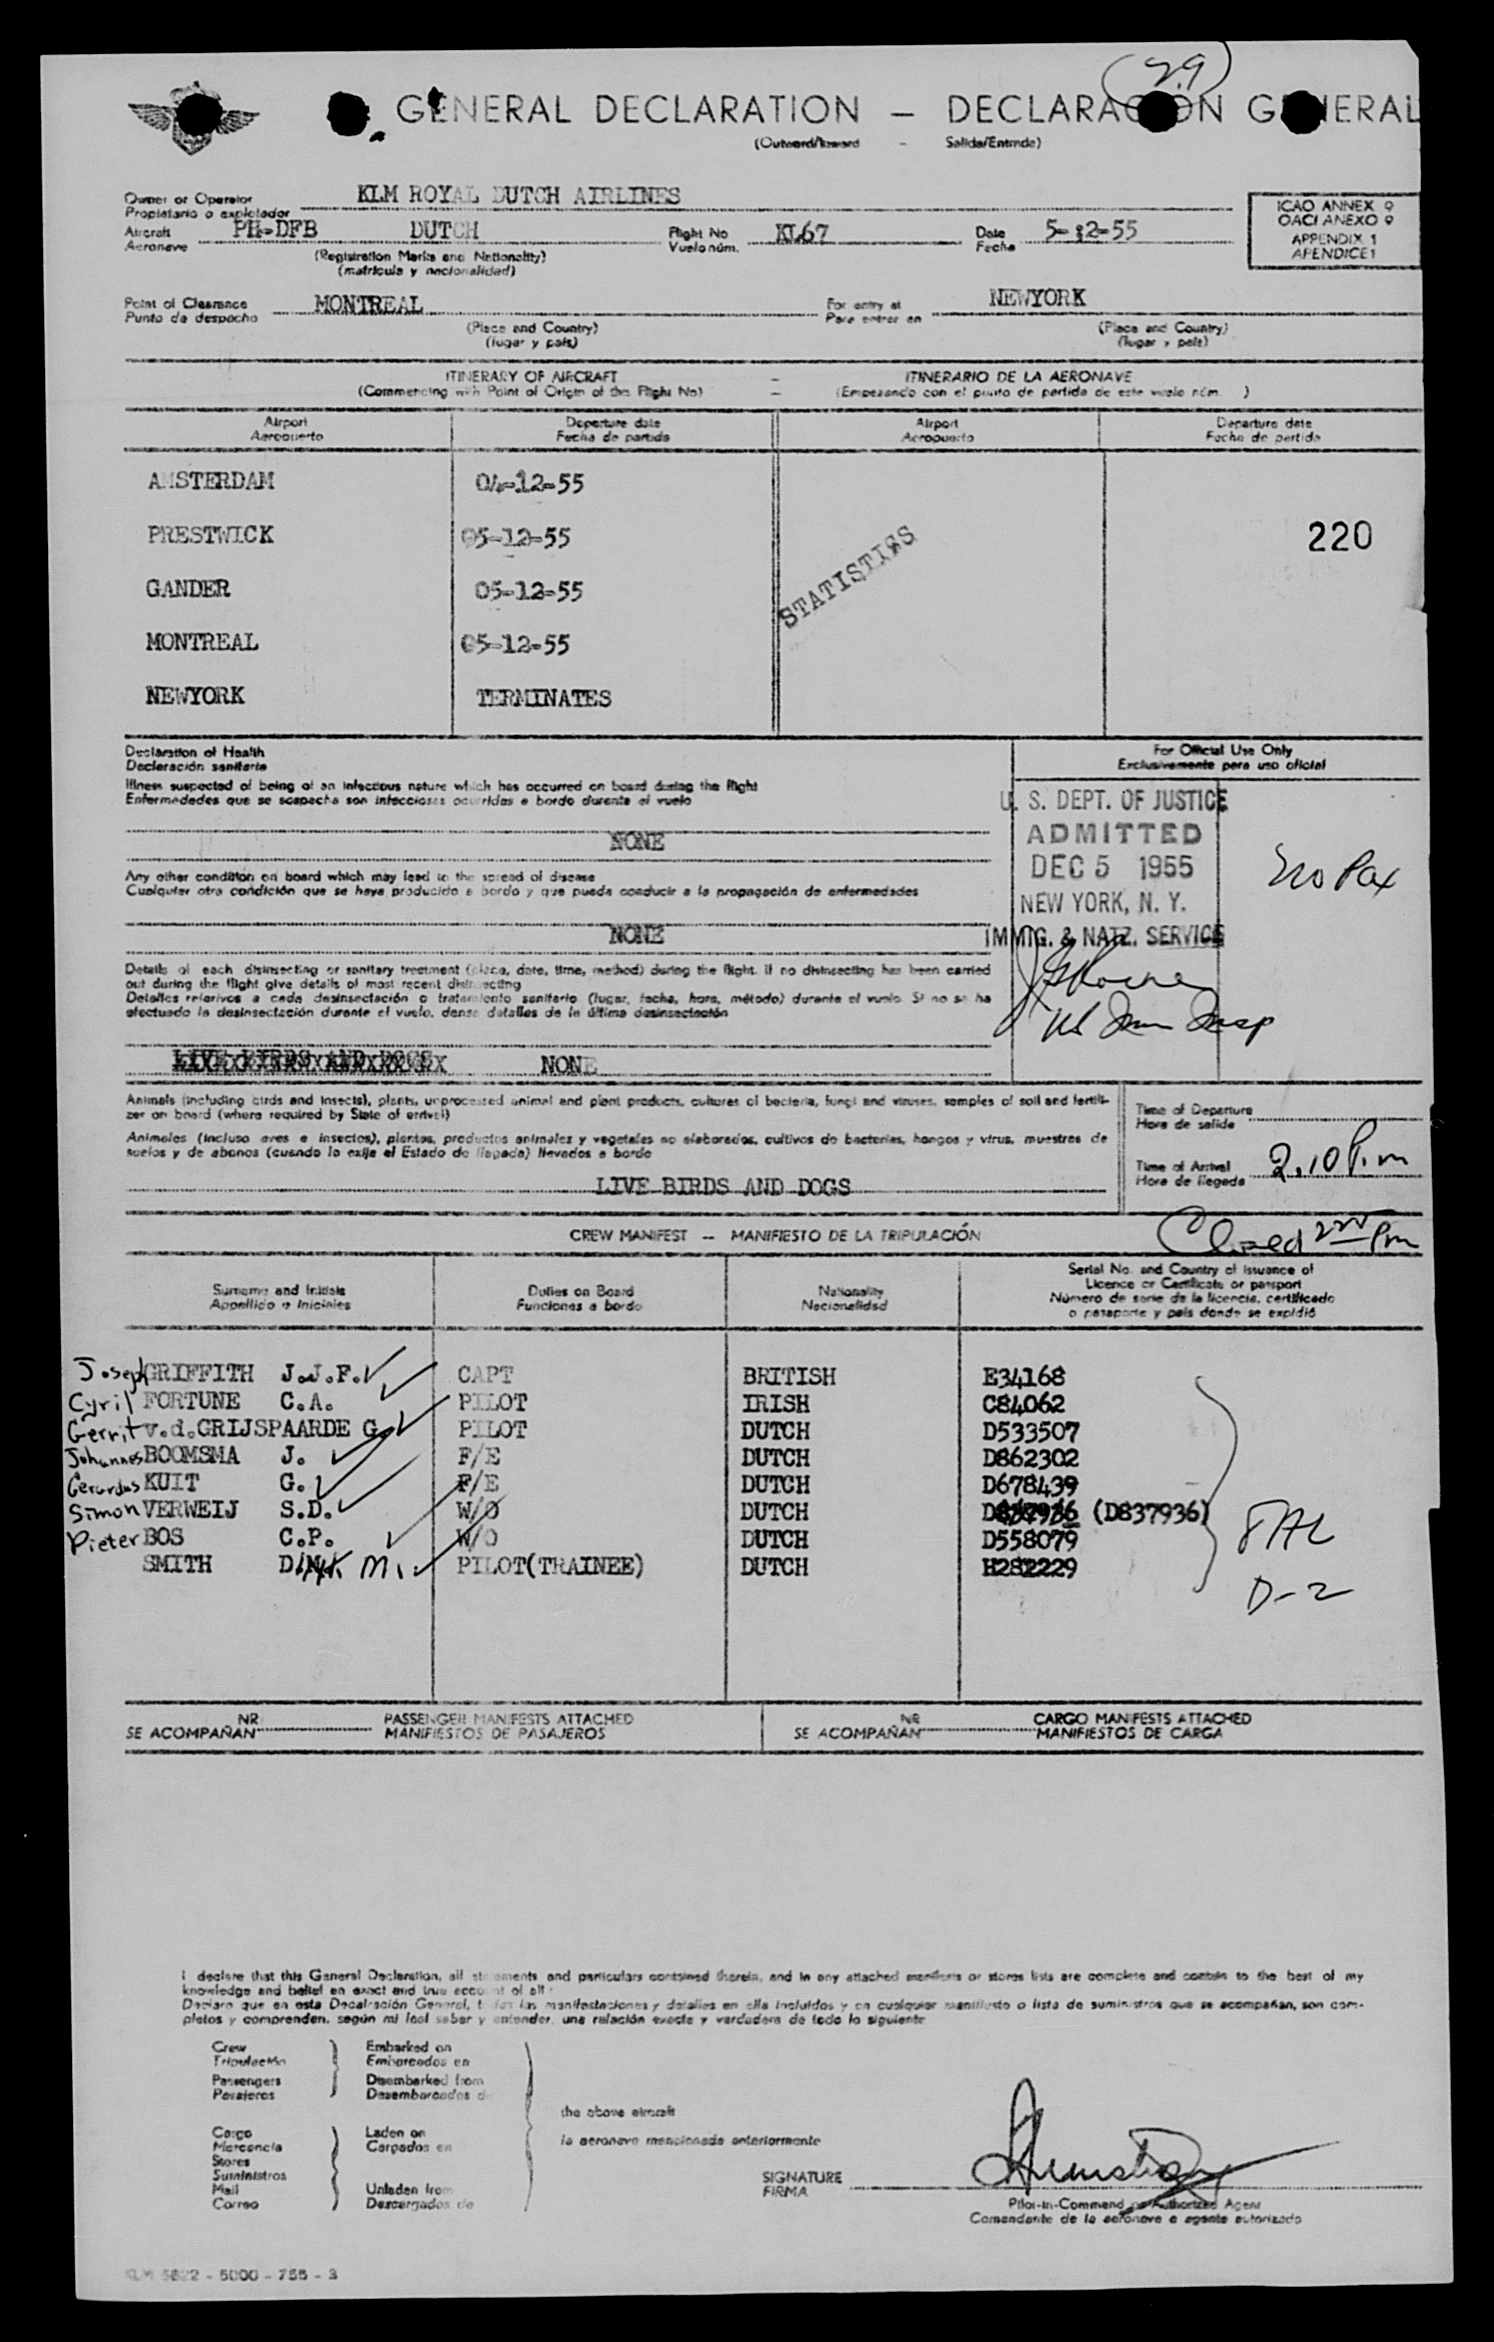 (29)
GENERAL DECLARATION – DECLARACION GENERAL
(Outward/Inward - Salida/Entrada)
Owner or Operator KLM ROYAL DUTCH AIRLINES
Propietario o explotador
Aircraft PH-DFB DUTCH Flight No KL67 Date 5-12-55
Aeronave Vuelo núm. Fecha
(Registration Marks and Nationality)
(matrícula y nacionalidad)
ICAO ANNEX 9
OACI ANEXO 9
APPENDIX 1
APENDICE 1
Point of Clearance MONTREAL For entry at NEWYORK
Punto de despacho Para entrar en
(Place and Country) (Place and Country)
(lugar y país) (lugar y país)
ITINERARY OF AIRCRAFT – ITINERARIO DE LA AERONAVE
(Commencing with Point of Origin of this Flight No) – (Empezando con el punto de partida de este vuelo núm. )
Airport Departure date Airport Departure date
Aeropuerto Fecha de partida Aeropuerto Fecha de partida
AMSTERDAM 04-12-55
PRESTWICK 05-12-55
220
GANDER 05-12-55
STATISTICS
MONTREAL 05-12-55
NEWYORK TERMINATES
Declaration of Health
Declaración sanitaria
For Official Use Only
Exclusivamente para uso oficial
Illness suspected of being of an infectious nature which has occurred on board during the flight
Enfermedades que se sospecha son infecciosas ocurridas a bordo durante el vuelo
NONE
U. S. DEPT. OF JUSTICE
ADMITTED
DEC 5 1955
NEW YORK, N. Y.
IMMIG. & NATZ. SERVICE
No Pax
US Imm Insp
Any other condition on board which may lead to the spread of disease
Cualquier otra condición que se haya producido a bordo y que pueda conducir a la propagación de enfermedades
NONE
Details of each disinsecting or sanitary treatment (place, date, time, method) during the flight. If no disinsecting has been carried
out during the flight give details of most recent disinsecting
Detalles relativos a cada desinsectación o tratamiento sanitario (lugar, fecha, hora, método) durante el vuelo. Si no se ha
efectuado la desinsectación durante el vuelo, dense detalles de la última desinsectación
LIVE BIRDS AND DOGS NONE
Animals (including birds and insects), plants, unprocessed animal and plant products, cultures of bacteria, fungi and viruses, samples of soil and fertili-
zer on board (where required by State of arrival)
Animales (incluso aves e insectos), plantas, productos animales y vegetales no elaborados, cultivos de bacterias, hongos y virus, muestras de
suelos y de abonos (cuando lo exija el Estado de llegada) llevados a bordo
LIVE BIRDS AND DOGS
Time of Departure
Hora de salida
Time of Arrival 2.10 P.m
Hora de llegada
Closed 2 Pm
CREW MANIFEST – MANIFIESTO DE LA TRIPULACIÓN
Surname and Initials Duties on Board Nationality Serial No. and Country of Issuance of
Apellido e Iniciales Funciones a bordo Nacionalidad Licence or Certificate or passport
Número de serie de la licencia, certificado
o pasaporte y país donde se expidió
Joseph GRIFFITH J.J.F. CAPT BRITISH E34168
Cyril FORTUNE C.A. PILOT IRISH C84062
Gerrit v.d.GRIJSPAARDE G. PILOT DUTCH D533507
Johannes BOOMSMA J. F/E DUTCH D862302
Gerardus KUIT G. F/E DUTCH D678439
Simon VERWEIJ S.D. W/O DUTCH (D837936)
Pieter BOS C.P. W/O DUTCH D558079
SMITH M. PILOT(TRAINEE) DUTCH H282229
D-2
NR PASSENGER MANIFESTS ATTACHED NR CARGO MANIFESTS ATTACHED
SE ACOMPAÑAN MANIFIESTOS DE PASAJEROS SE ACOMPAÑAN MANIFIESTOS DE CARGA
I declare that this General Declaration, all statements and particulars contained therein, and in any attached manifests or stores lists are complete and contain to the best of my
knowledge and belief an exact and true account of all:
Declaro que en esta Decalración General, todas las manifestaciones y detalles en ella incluidos y en cualquier manifiesto o lista de suministros que se acompañan, son com-
pletos y comprenden, según mi leal saber y entender, una relación exacta y verdadera de todo lo siguiente
Crew Embarked on
Tripulación Embarcados en
Passengers Disembarked from
Pasajeros Desembarcados de
the above aircraft
Cargo Laden on
Mercancía Cargados en
la aeronave mencionada anteriormente
Stores
Suministros
Mail Unladen from
Correo Descargados de
SIGNATURE
FIRMA
Pilot-in-Command or Authorized Agent
Comandante de la aeronave o agente autorizado
KLM 5822 - 5000 - 755 - 3